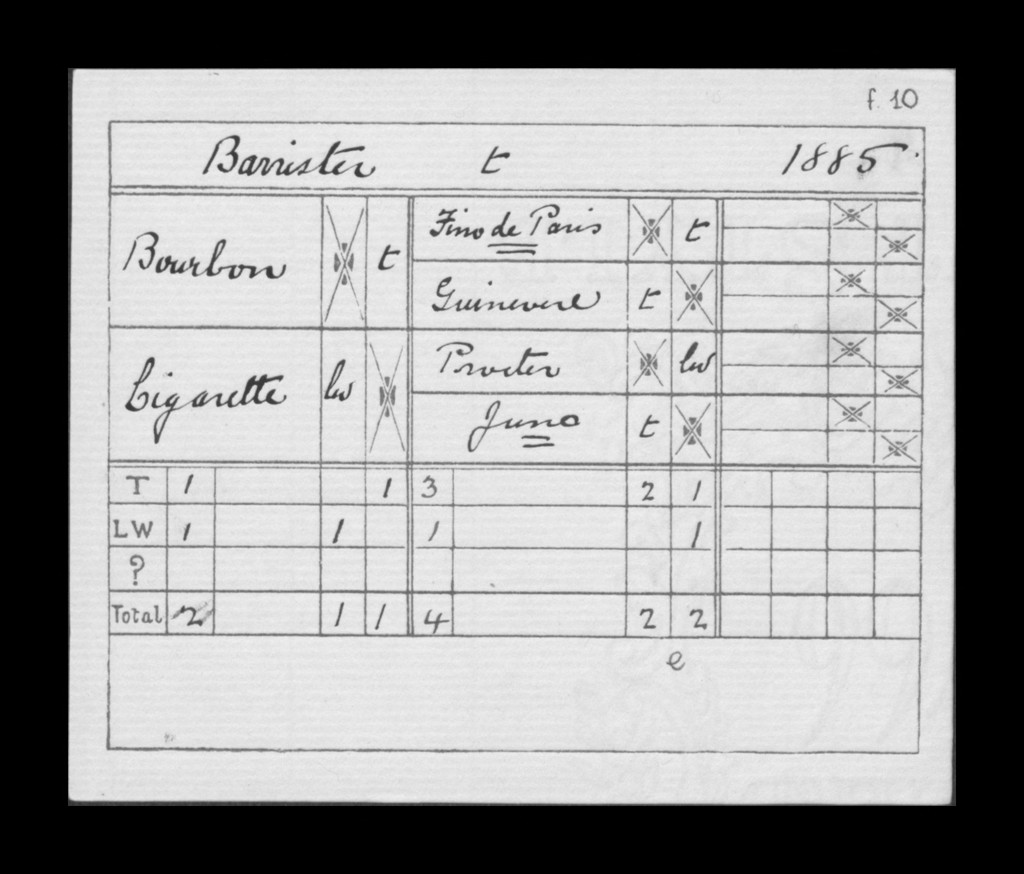 f. 10
Barrister t 1885
Bourbon t
Fino de Paris t
Guinevere t
Cigarette lw
Procter lw
Juno t
T 1 1 3 2 1
LW 1 1 1 1
?
Total 2 1 1 4 2 2
e